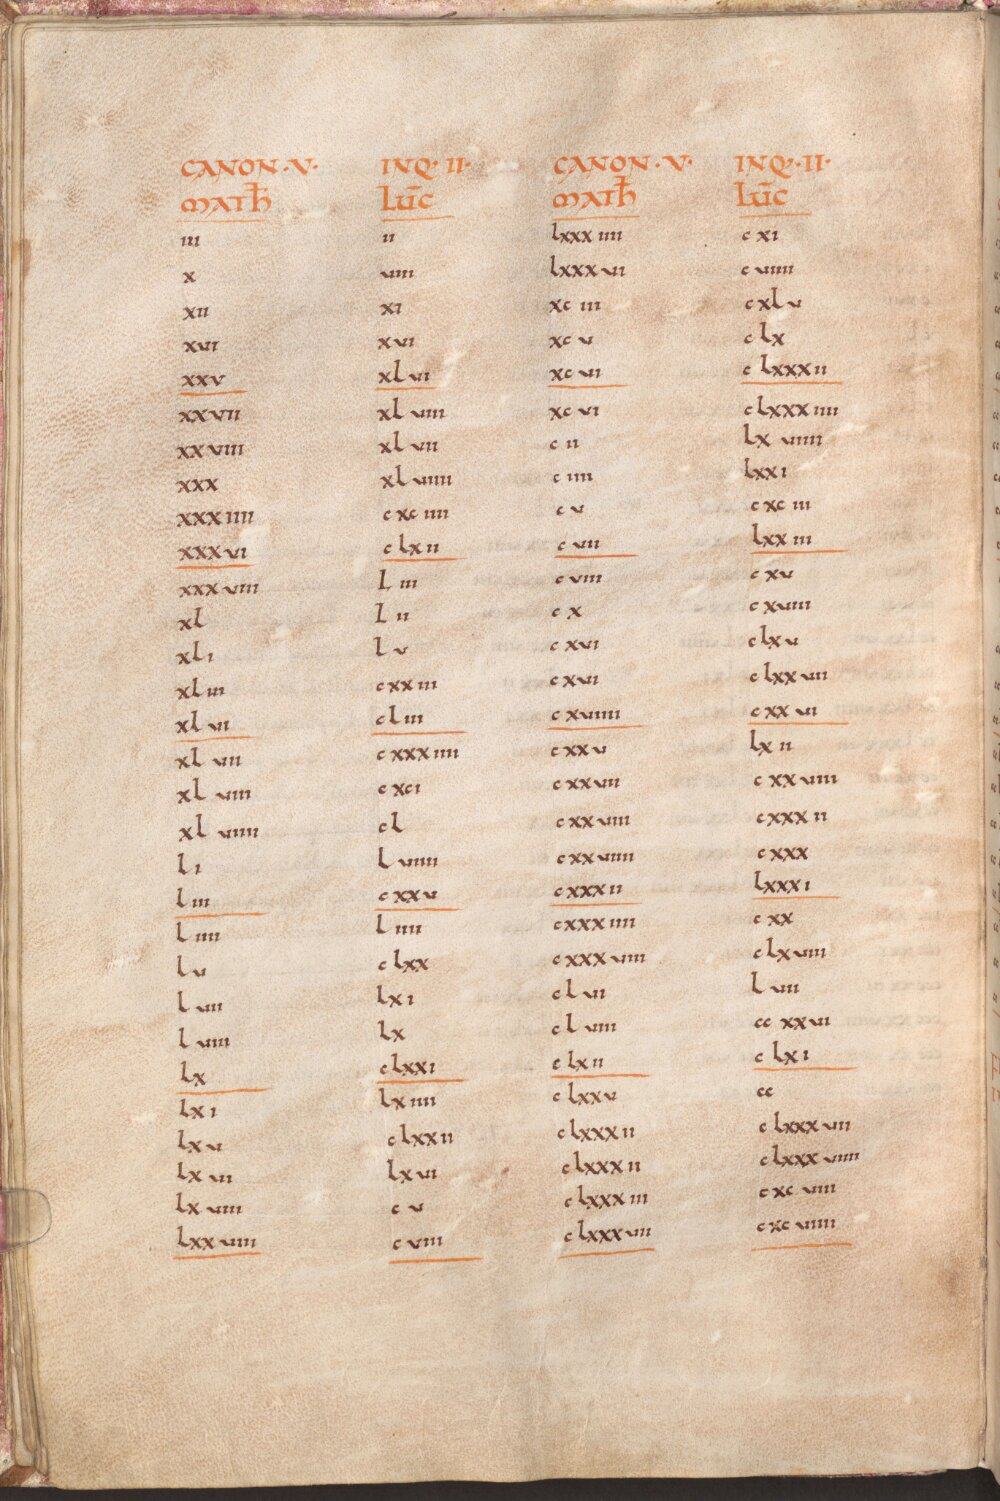 CANON·V· INQ· II· CANON·V· INQ·II·
MATH̄ LŪC MATH̄ LŪC
iii ii lxxx iiii c xi
x viii lxxx vi c viiii
xii xi xc iii c xl v
xvi xvi xc v c lx
xxv xl vi xc vi c lxxx ii
xx vii xl viii xc vi c lxxx iiii
xx viii xl vii c ii lx viiii
xxx xl viiii c iiii lxx i
xxx iiii c xc iiii c v c xc iii
xxx vi c lx ii c vii lxx iii
xxx viii L iii c viii c xv
xl L ii c x c xviii
xl i l v c xvi c lx v
xl iii c xx iii c xvii c lxx vii
xl vi c l iii c xviiii c xx vi
xl vii c xxx iiii c xx v lx ii
xl viii c xc i c xx vii c xx viii
xl viiii c l c xx viii c xxx ii
l i l viiii c xx viiii c xxx
l iii c xx v c xxx ii lxxx i
l iiii l iiii c xxx iiii c xx
l v c lxx c xxx viii c lx viii
l vii lx i c l vi l vii
l viii lx c l viii cc xx vi
lx c lxx i c lx ii c lx i
lx i lx iiii c lxx v cc
lx v c lxx ii c lxxx ii c lxxx vii
lx vi lx vi c lxxx ii c lxxx viiii
lx viii c v c lxxx iii c xc viii
lxx viiii c viii c lxxx vii c xc viiii